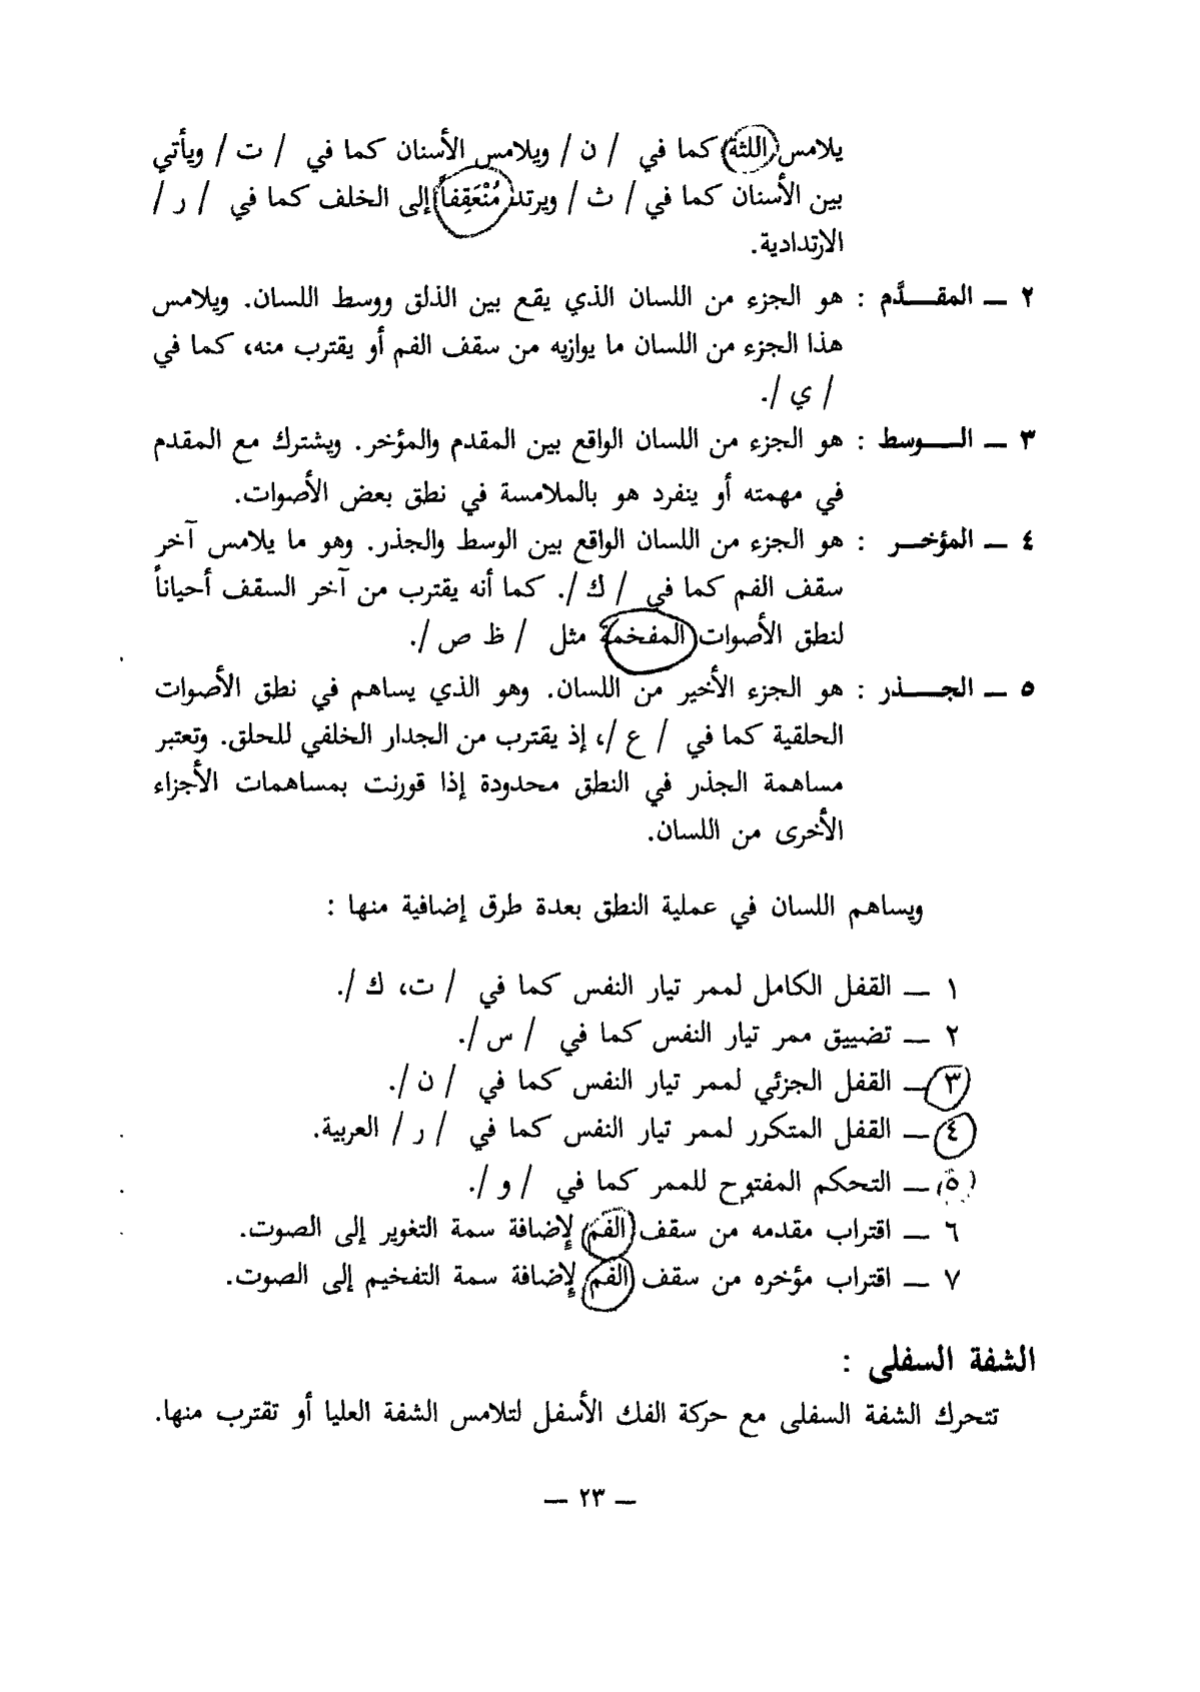 يلامس اللثة كما في / ن / ويلامس الأسنان كما في / ت / ويأتي
بين الأسنان كما في / ث / ويرتد مُنْعَقِفاً إلى الخلف كما في / ر /
الارتدادية.
٢ ــ المقـــدَّم : هو الجزء من اللسان الذي يقع بين الذلق ووسط اللسان. ويلامس
هذا الجزء من اللسان ما يوازيه من سقف الفم أو يقترب منه، كما في
/ ي /.
٣ ــ الـــوسط : هو الجزء من اللسان الواقع بين المقدم والمؤخر. ويشترك مع المقدم
في مهمته أو ينفرد هو بالملامسة في نطق بعض الأصوات.
٤ ــ المؤخـــر : هو الجزء من اللسان الواقع بين الوسط والجذر. وهو ما يلامس آخر
سقف الفم كما في / ك /. كما أنه يقترب من آخر السقف أحياناً
لنطق الأصوات المفخمة مثل / ظ ص /.
٥ ــ الجـــذر : هو الجزء الأخير من اللسان. وهو الذي يساهم في نطق الأصوات
الحلقية كما في / ع /، إذ يقترب من الجدار الخلفي للحلق. وتعتبر
مساهمة الجذر في النطق محدودة إذا قورنت بمساهمات الأجزاء
الأخرى من اللسان.
ويساهم اللسان في عملية النطق بعدة طرق إضافية منها :
١ ــ القفل الكامل لممر تيار النفس كما في / ت، ك /.
٢ ــ تضييق ممر تيار النفس كما في / س /.
٣ ــ القفل الجزئي لممر تيار النفس كما في / ن /.
٤ ــ القفل المتكرر لممر تيار النفس كما في / ر / العربية.
٥ ــ التحكم المفتوح للممر كما في / و /.
٦ ــ اقتراب مقدمه من سقف الفم لإضافة سمة التغوير إلى الصوت.
٧ ــ اقتراب مؤخره من سقف الفم لإضافة سمة التفخيم إلى الصوت.
الشفة السفلى :
تتحرك الشفة السفلى مع حركة الفك الأسفل لتلامس الشفة العليا أو تقترب منها.
ــ ٢٣ ــ